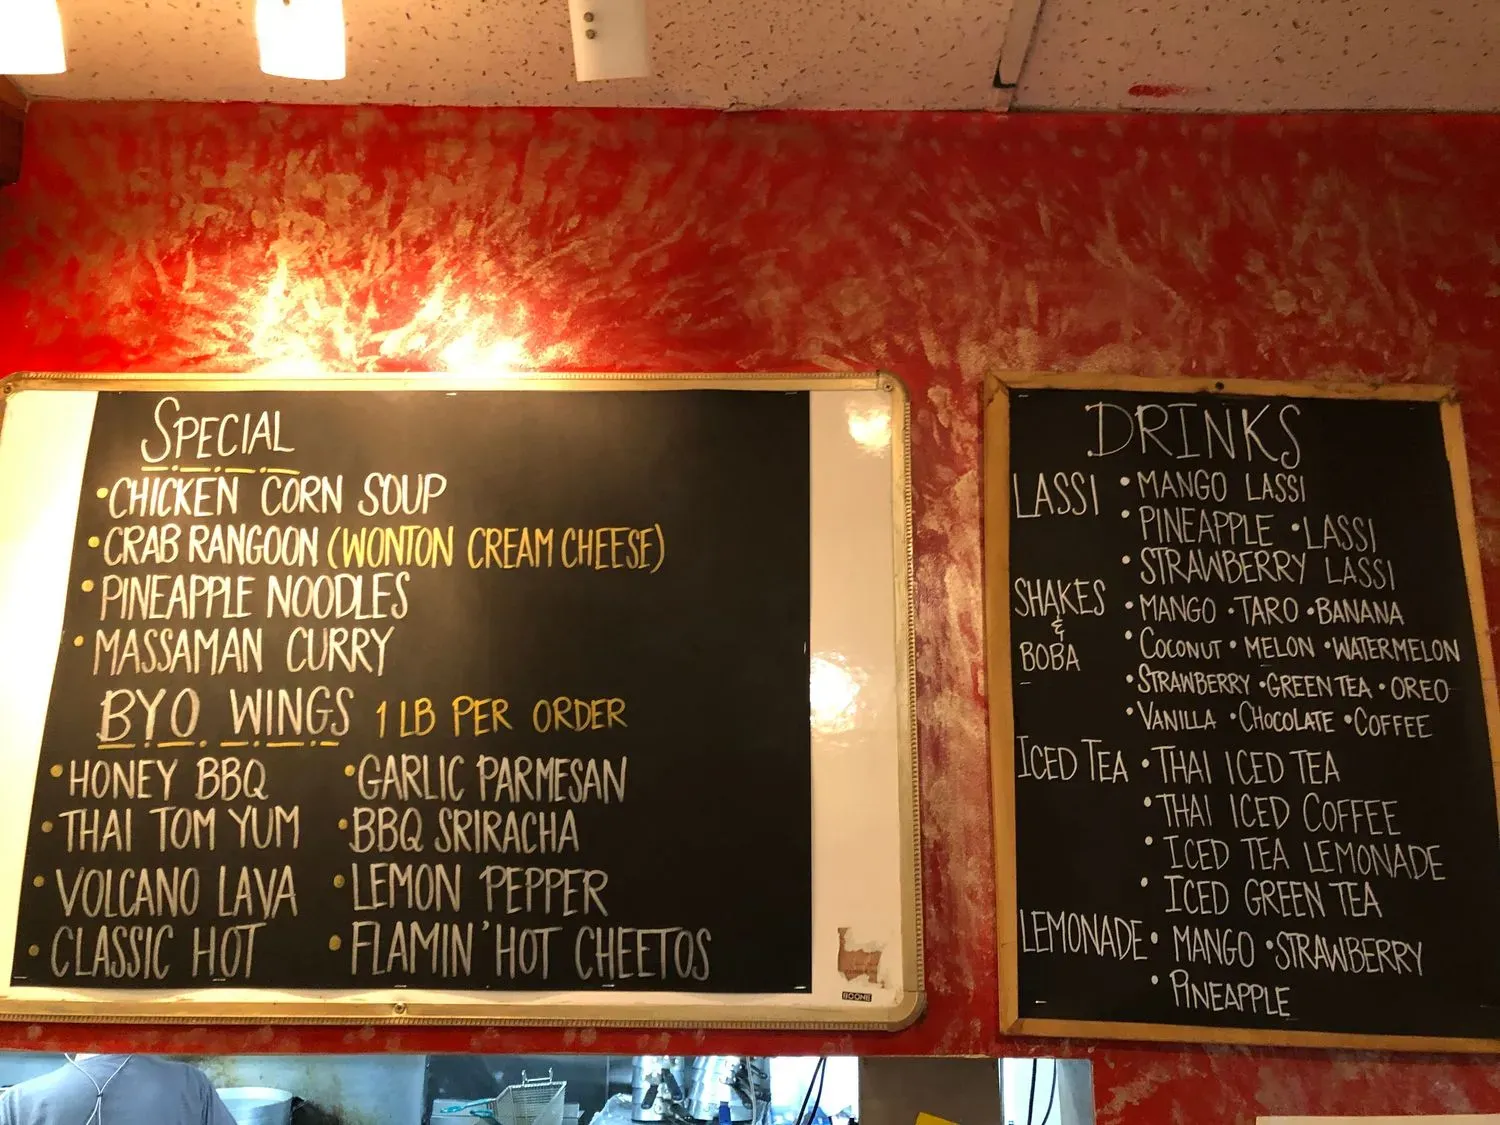 SPECIAL
• CHICKEN CORN SOUP
• CRAB RANGOON (WONTON CREAM CHEESE)
• PINEAPPLE NOODLES
• MASSAMAN CURRY
BYO WINGS 1 LB PER ORDER
• HONEY BBQ • GARLIC PARMESAN
• THAI TOM YUM • BBQ SRIRACHA
• VOLCANO LAVA • LEMON PEPPER
• CLASSIC HOT • FLAMIN' HOT CHEETOS
BOONE
DRINKS
LASSI • MANGO LASSI
• PINEAPPLE • LASSI
• STRAWBERRY LASSI
SHAKES & BOBA • MANGO • TARO • BANANA
• COCONUT • MELON • WATERMELON
• STRAWBERRY • GREEN TEA • OREO
• VANILLA • CHOCOLATE • COFFEE
ICED TEA • THAI ICED TEA
• THAI ICED COFFEE
• ICED TEA LEMONADE
• ICED GREEN TEA
LEMONADE • MANGO • STRAWBERRY
• PINEAPPLE